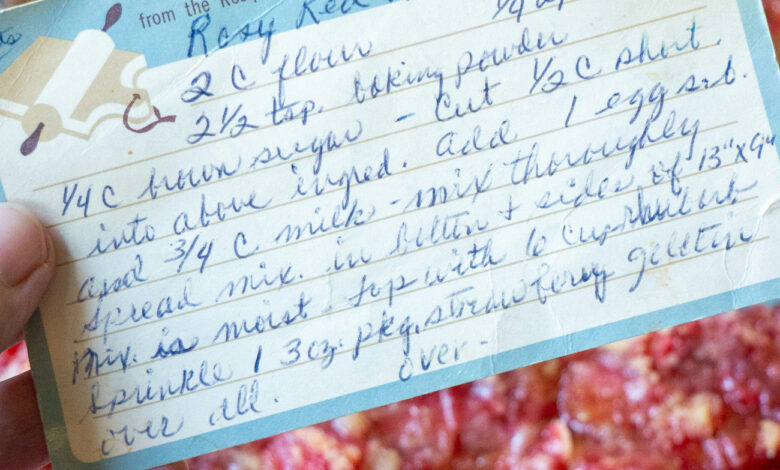 from the
Rosy Red
1/4
2 C flour
2 1/2 tsp. baking powder
1/4 C brown sugar - Cut 1/2 C short.
into above ingred. Add 1 egg
and 3/4 C milk - mix thoroughly
Spread mix. in bottom + sides of 13" x 9"
Mix. is moist - top with 6 cups rhubarb
Sprinkle 1 3oz. pkg. strawberry gelatin
over all. over-